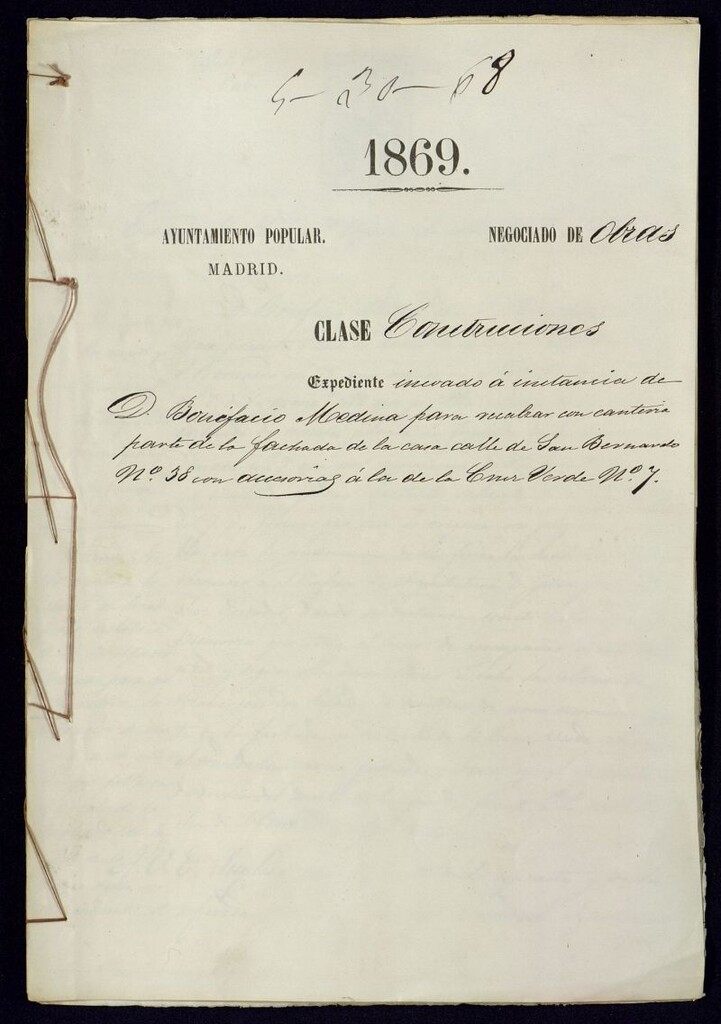 5-30-68
1869.
AYUNTAMIENTO POPULAR. NEGOCIADO DE Obras
MADRID.
CLASE Construciones
Expediente incoado á instancia de
D. Bonifacio Medina para recalzar con canteria
parte de la fachada de la casa calle de San Bernardo
Nº. 38 con accesorias á la de la Cruz Verde Nº. 7.